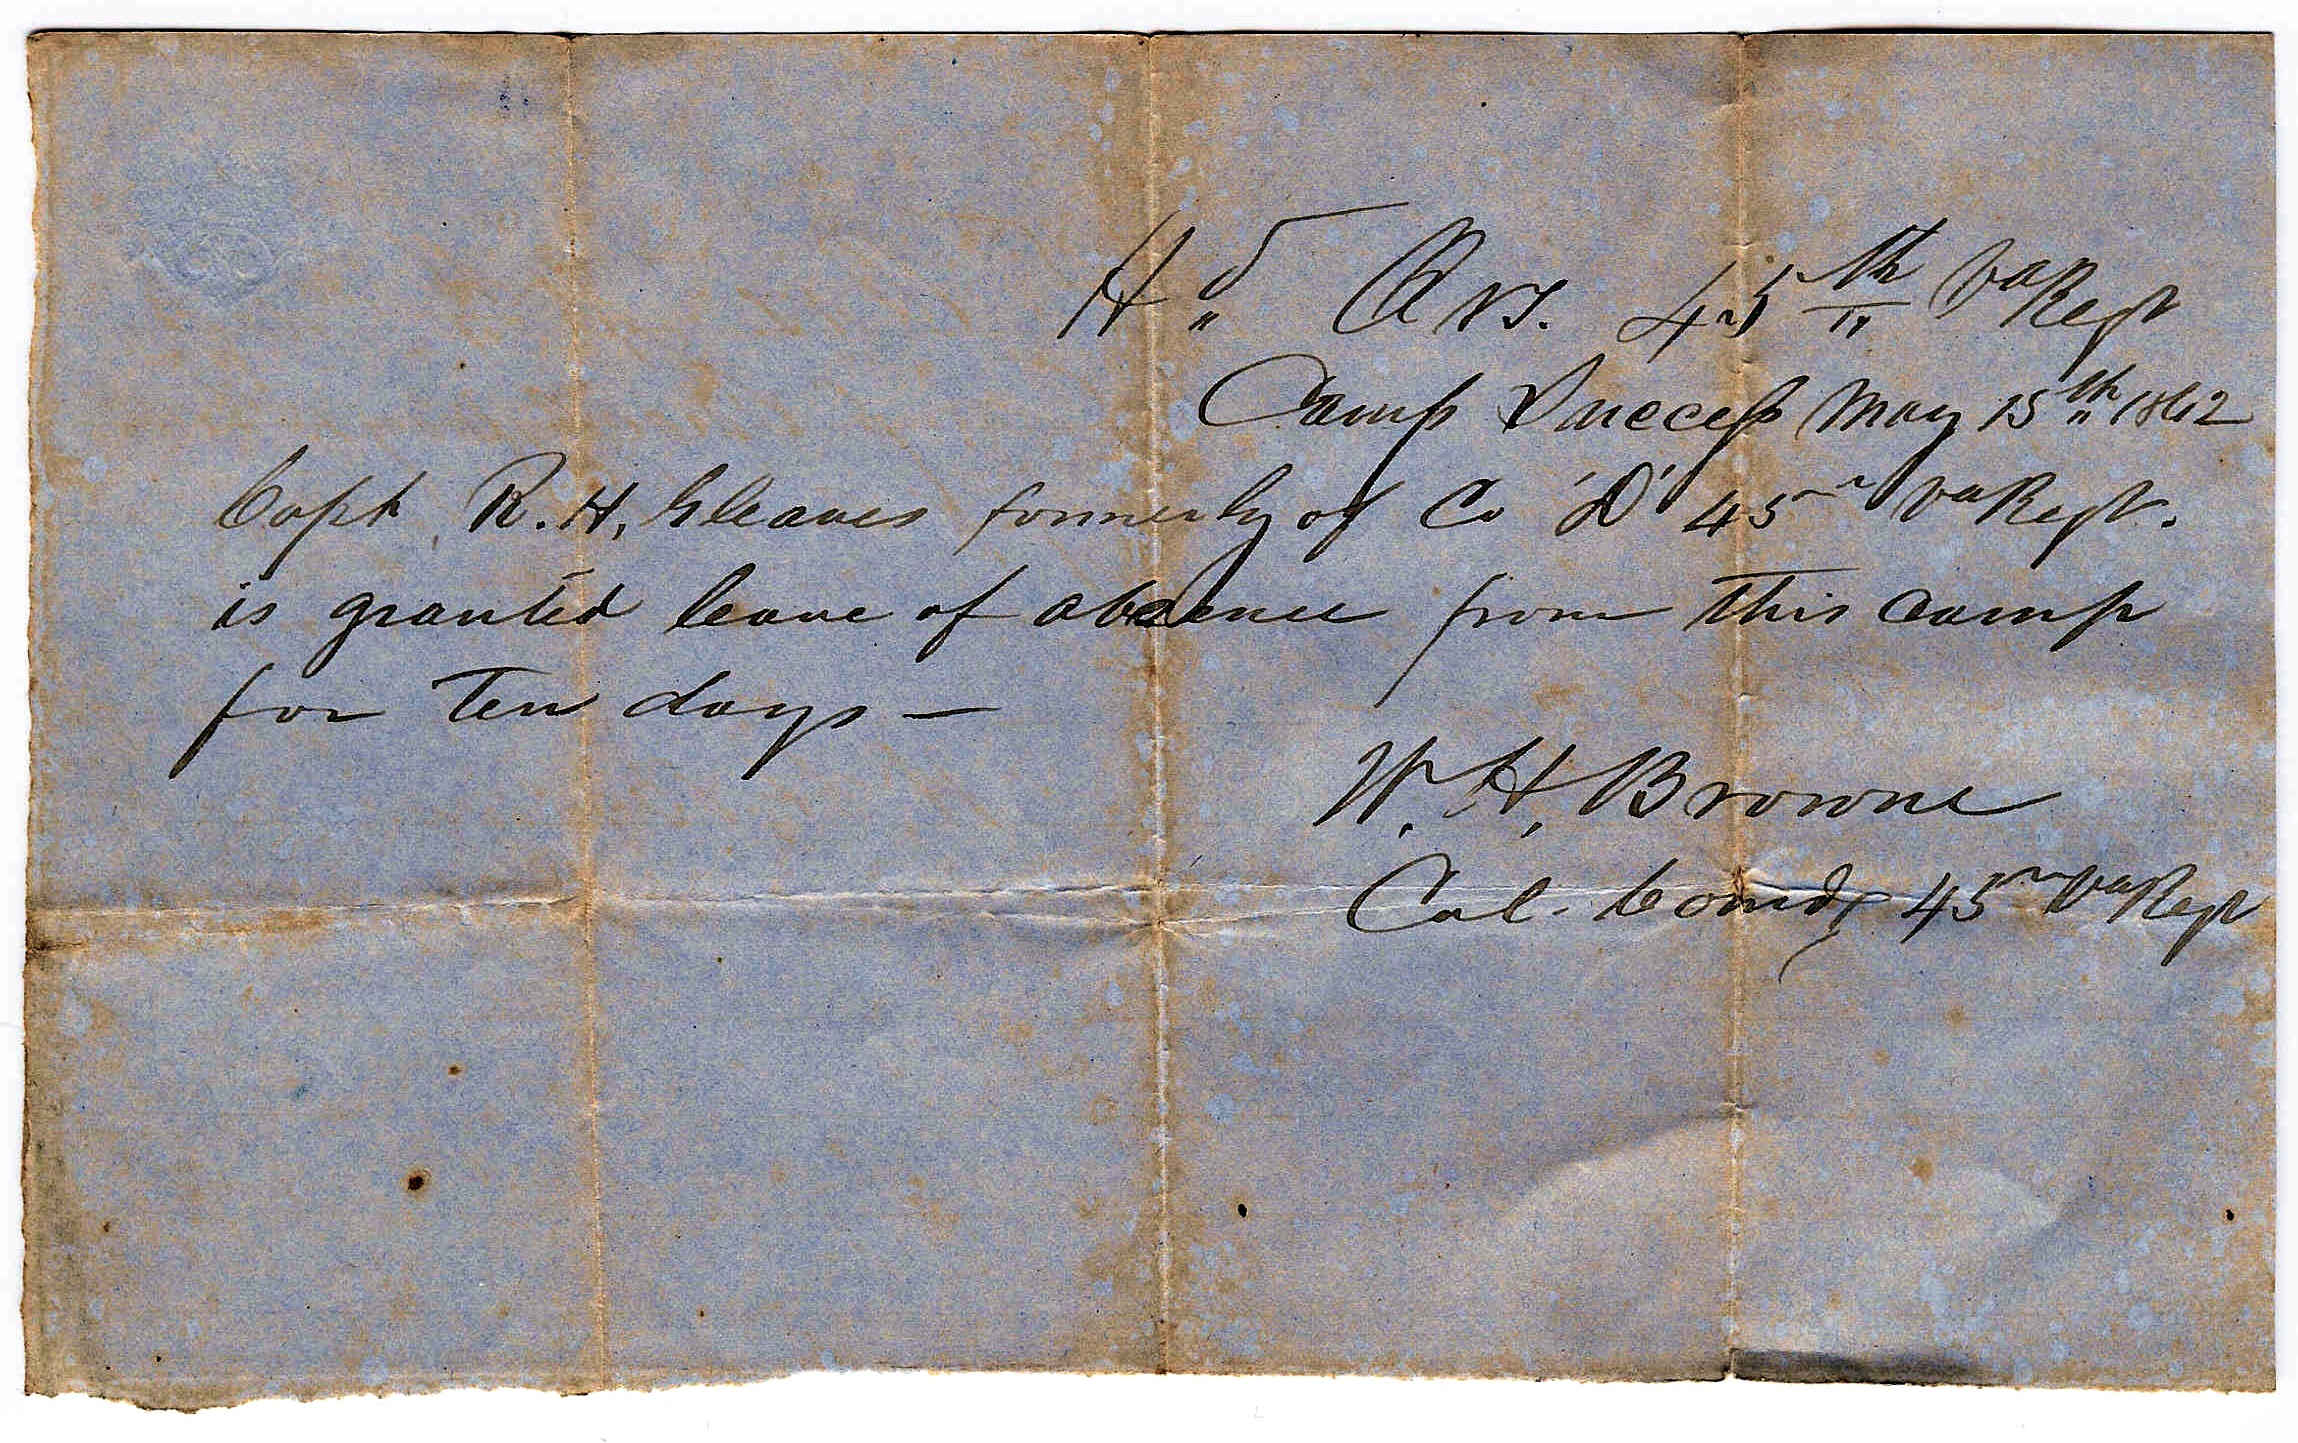 Hd Qrs. 45th Va Regt
Camp Success May 15th 1862
Capt R. H. Gleaves formerly of Co 'D' 45th Va Regt.
is granted leave of absence from this camp
for Ten days —
W. H. Browne
Col. Comdg 45th Va Regt